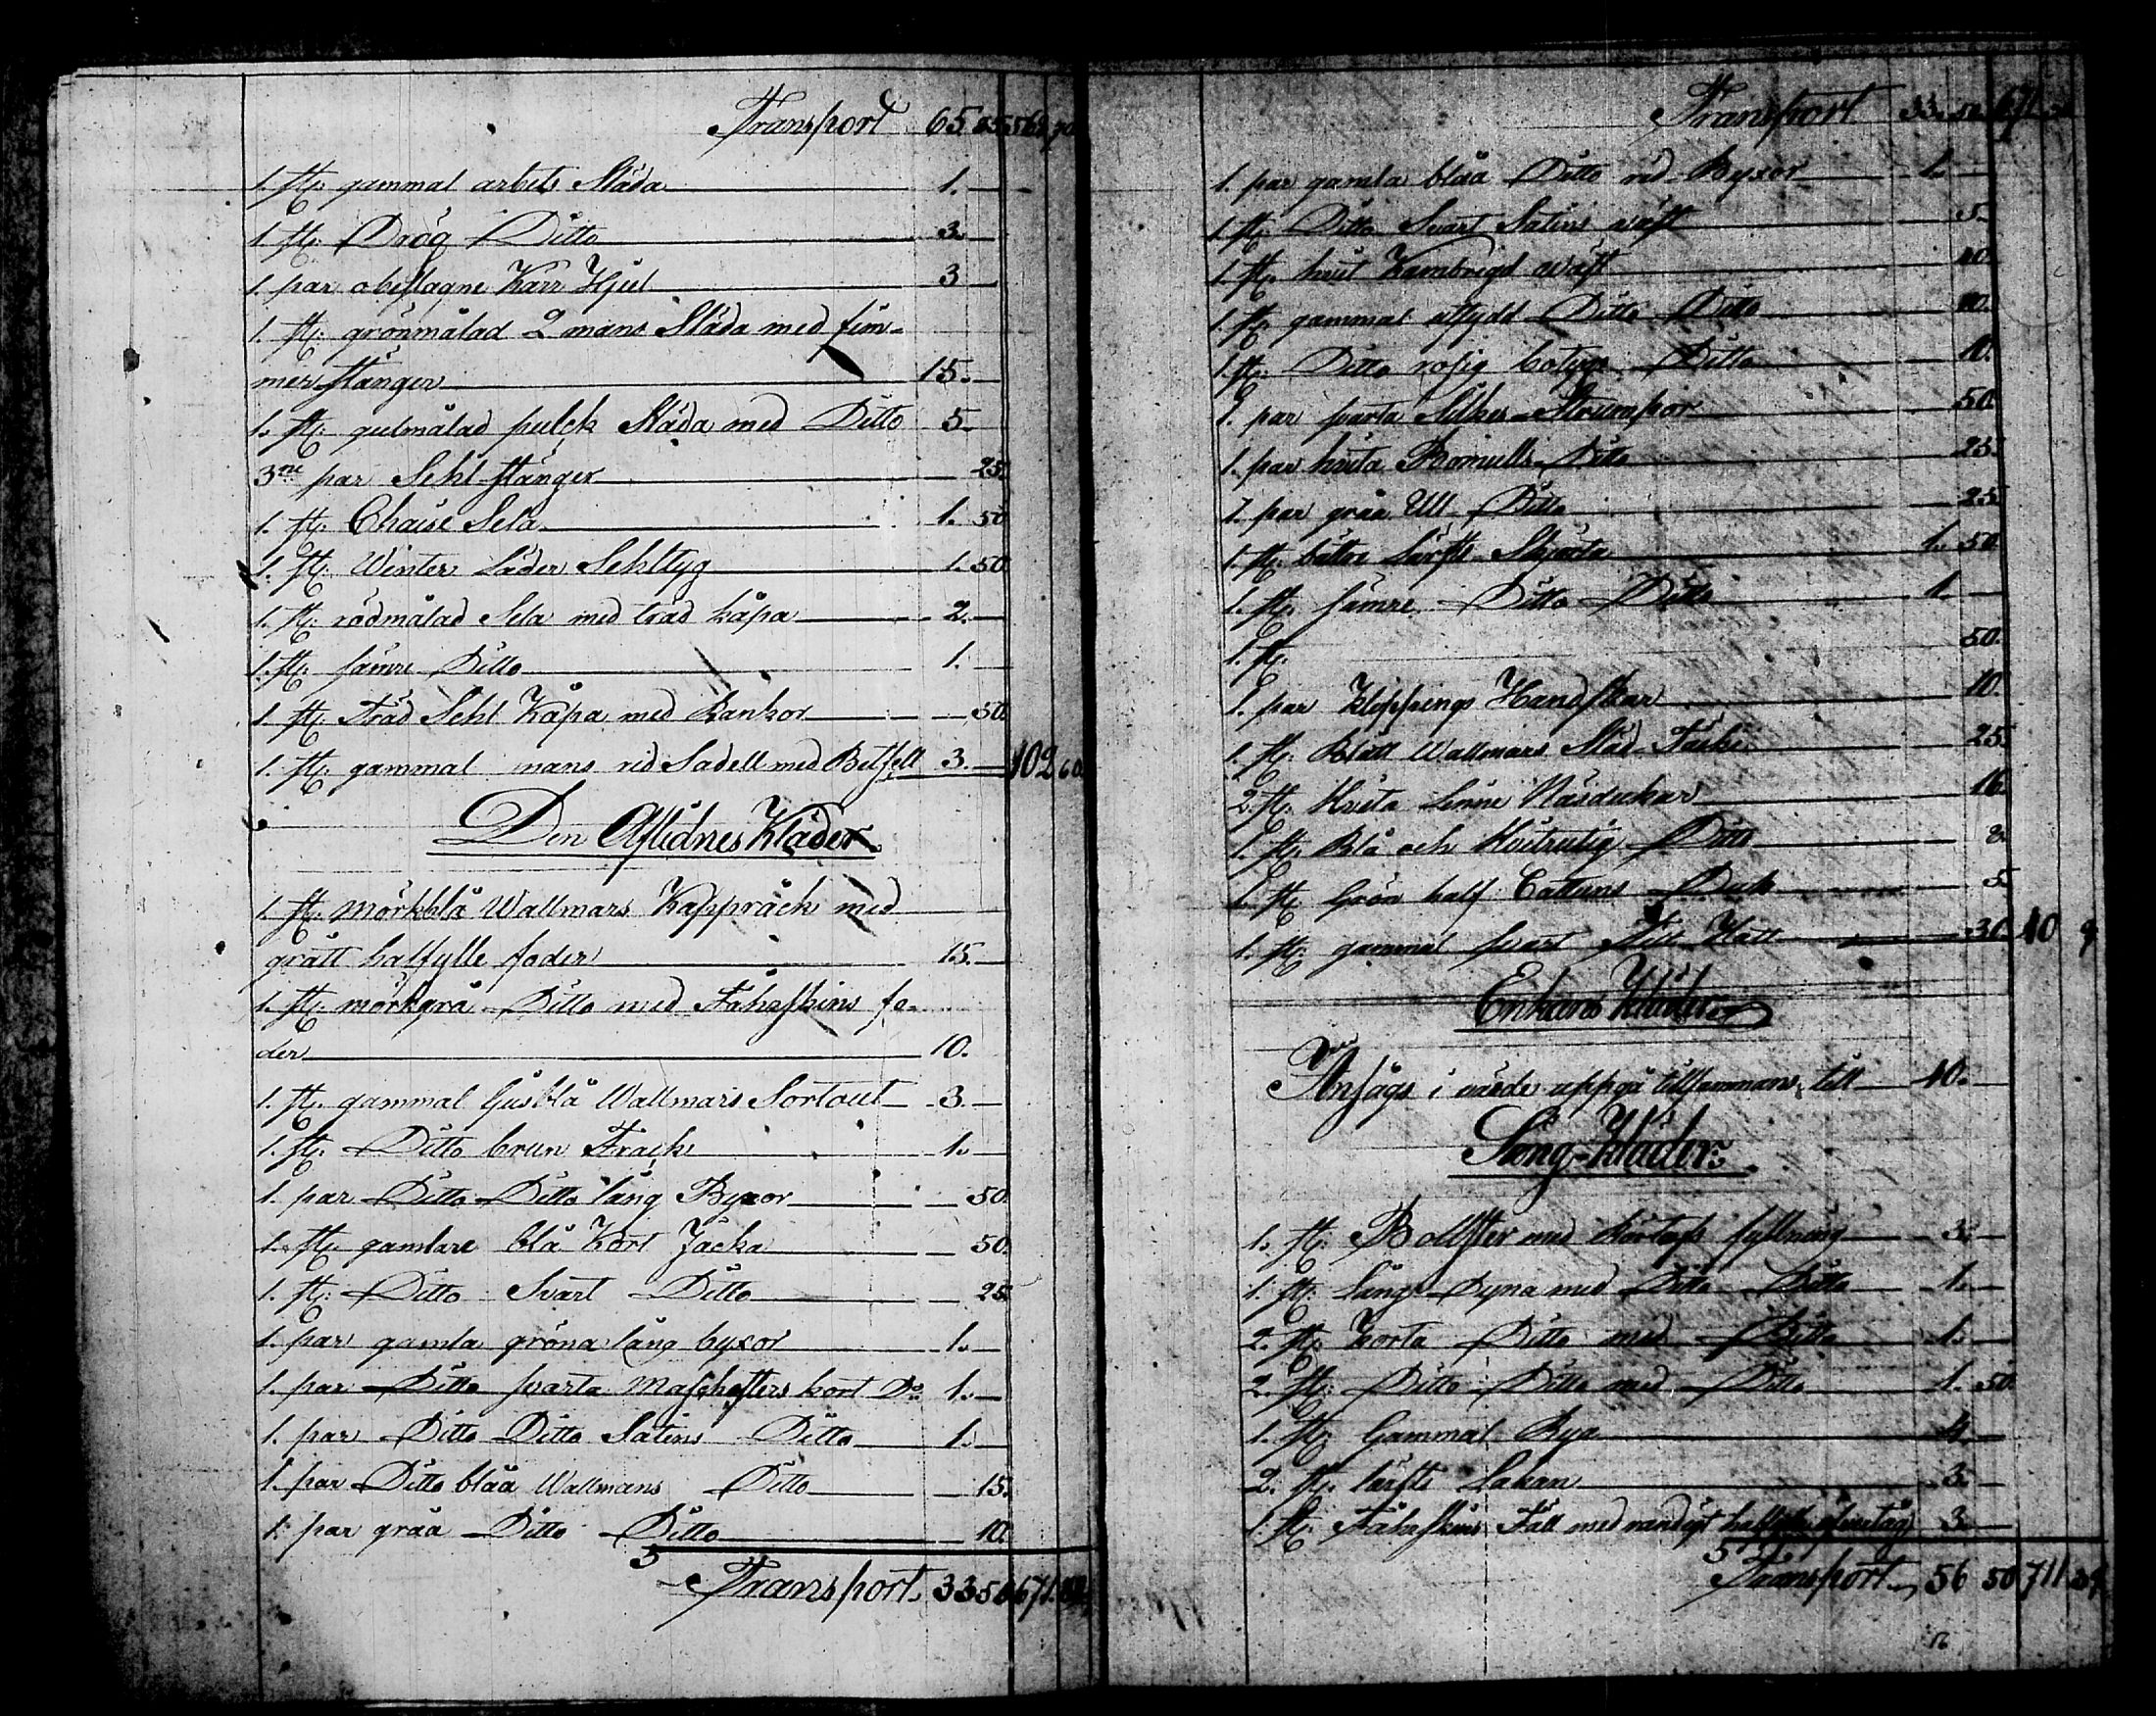 Transport 65 85 568 90
1. st. gammal arbets Släda 1. —
1. st. Drög Ditto 3. —
1. par obeslagne Kärr Hjul 3 —
1. st. grönmålad 2 mans Släda med fim-
merstänger 15. —
1. st. gulmålad pulck Släda med Ditto 5 —
3ne par Sehl stänger — 25.
1. st. Chaise Sela 1. 50
1. st. Winter Läder Sehltyg 1. 50
1. st. rödmålad Sela med träd kåpa 2. —
1. st. sämre Ditto 1. —
1. st. Träd Sehl Kåpa med Rankor — 50.
1. st. gammal mans rid Sadell med Betsell 3. — 102 60
Den Aflidnes Kläder
1. st. Mörkblå Wallmars Kappråck med
grått halfylle foder 15. —
1. st. mörkgrå Ditto med Fåhrskins fo-
der 10.
1. st. gammal ljusblå Wallmars Sortout 3. —
1. st. Ditto brun Frack 1. —
1. par Ditto Ditto lång Byxor — 50.
1. st. gamlare blå Kort Jacka — 50.
1. st. Ditto Svart Ditto — 25.
1. par gamla gröna lång byxor 1. —
1. par Ditto svarta Maschesters kort Do 1. —
1. par Ditto Ditto Satins Ditto 1. —
1. par Ditto blåa Wallmans Ditto — 15.
1. par gråa Ditto Ditto — 10.
Transport 33 50 671.
Transport 33. 50. 671
1. par gamla blåa Ditto rid Byxor 1. —
1. st. Ditto Svart Satins wäst — 5.
1. st. hvit Kambrigd wäst 10.
1. st. gammal utsydd Ditto Ditto
1. st. Ditto rosig Ditto 10.
1. par svarta Silkes Strumpor 50.
1. par hvita Bomulls Ditto 25.
7. par gråa Ull Ditto 25.
1. st. bättre Lärfts Skjorta 1. 50
1. st. sämre Ditto Ditto 1. —
1. st. 50.
1. par Klippings Handskar 10.
1. st. Blått Wallmars Släd Täcke 25.
2. st. Hvita Linne Näsdukar 16.
1. st. Blå och Hvitrutig Ditto 8.
1. st. Grön half Cattuns Duk 5.
1. st. gammal svart Filt Hatt 30. 40 9
Enkans Kläder
Ansågs i värde uppgå tillsammans till 10. —
Säng-Kläder
1. st. Bollster med fyllning 3. —
1. st. Lång Dyna med Ditto Ditto 1. —
2. st. Korta Ditto med Ditto 1. —
2. st. Ditto Ditto med Ditto 1. 50
1. st. Gammal Rya 4. —
2. st. lärfts Lakan 3. —
1. st. Fåhrskins Fäll med randigt 3. —
Transport 56 50 711 29